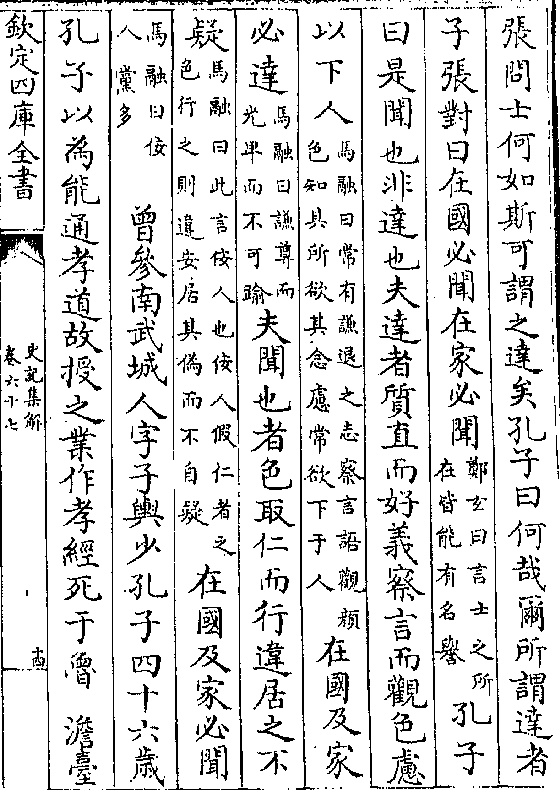 張問士何如斯可謂之達矣孔子曰何哉爾所謂達者
子張對曰在國必聞在家必聞鄭玄曰言士之所在皆能有名譽孔子
曰是聞也非達也夫達者質直而好義察言而觀色慮
以下人馬融曰常有謙退之志察言語觀顔色知其所欲其念慮常欲下于人在國及家
必達馬融曰謙尊而光卑而不可踰夫聞也者色取仁而行違居之不
疑馬融曰此言佞人也佞人假仁者之色行之則違安居其偽而不自疑在國及家必聞
馬融曰佞人黨多曾參南武城人字子輿少孔子四十六歳
孔子以為能通孝道故授之業作孝經死于魯澹臺
欽定四庫全書
史記集解
卷六十七
十四